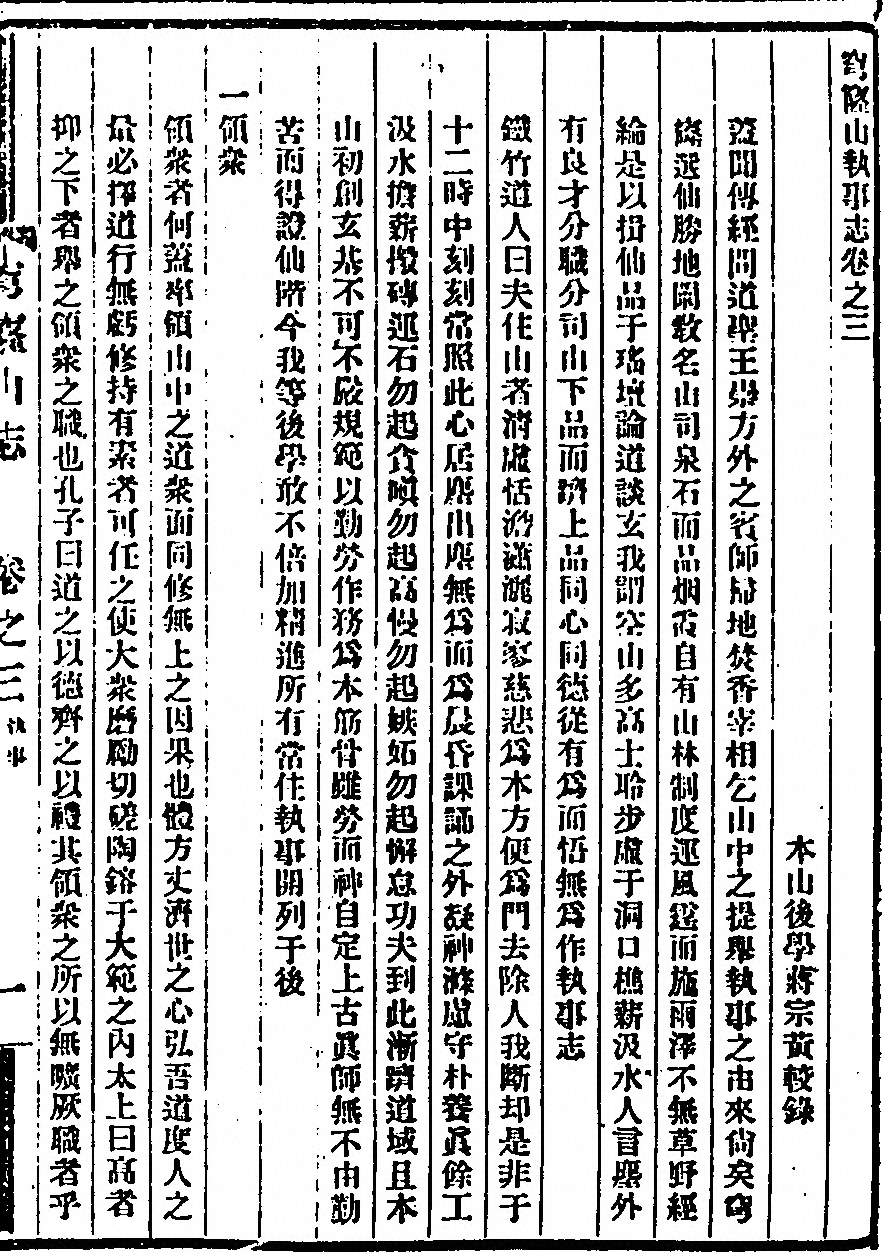 高隆山執事志卷之三
本山後學蔣宗黃較錄
蓋聞傳經問道聖王尋方外之賓師帚地焚香宰相乞山中之提舉執事之由來尚矣竊
簡選仙勝地閑敎名山司泉石而品烟霞自有山林制度運風霆而施雨澤不無草野經
綸是以揖仙品于瑤壇論道談玄我謂空山多高士聆步虛于洞口樵薪汲水人言塵外
有良才分職分司山下品而躋上品同心同德從有爲而悟無爲作執事志
鐵竹道人曰夫住山者清虛恬澹瀟灑寂寥慈悲爲本方便爲門去除人我斷却是非于
十二時中刻刻常照此心居塵出塵無爲而爲晨昏課誦之外凝神滌慮守朴養眞餘工
汲水擔薪搬磚運石勿起貪嗔勿起高慢勿起嫉妬勿起懈怠功夫到此漸躋道域且本
山初創玄基不可不嚴規範以勤勞作務爲本筋骨雖勞而神自定上古眞師無不由勤
苦而得證仙階今我等後學敢不倍加精進所有常住執事開列于後
一領衆
領衆者何蓋率領山中之道衆而同修無上之因果也體方丈濟世之心弘吾道度人之
量必擇道行無虧修持有素者可任之使大衆磨勵切磋陶鎔于大範之內太上曰高者
抑之下者舉之領衆之職也孔子曰道之以德齊之以禮其領衆之所以無曠厥職者乎
山志
卷之三
執事
一